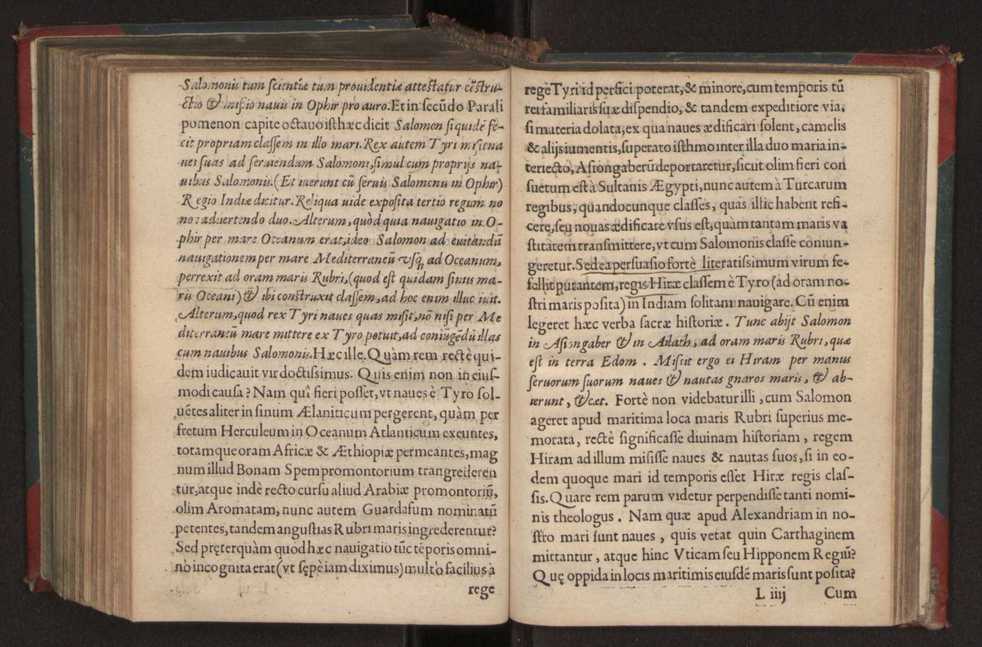 Salomonis tum scientiæ tum prouidentiæ attestatur cõstru-
ctio & missio nauis in Ophir pro auro. Et in secũdo Parali
pomenon capite octauo isthæc dicit Salomen siquidẽ fe-
cit propriam classem in illo mari. Rex autem Tyri misit na
ues suas ad seruiendum Salomoni, simul cum proprijs na-
uibus Salomonis. (Et iuerunt cũ seruis Salomonis in Ophir)
Regio Indiæ dicitur. Reliqua uide exposita tertio regum no
no: aduertendo duo. Alterum, quòd quia nauigatio in O-
phir per mare Oceanum erat, ideo Salomon ad euitandã
nauigationem per mare Mediterraneũ vsq; ad Oceanum,
perrexit ad oram maris Rubri, (quod est quidam sinus ma-
ris Oceani) & ibi construxit classem, ad hoc enim illuc iuit.
Alterum, quod rex Tyri naues quas misit, nõ nisi per Me
diterraneũ mare mittere ex Tyro potuit, ad coniũgẽdũ illas
cum nauibus Salomonis. Hæc ille. Quàm rem rectè qui-
dem iudicauit vir doctissimus. Quis enim non in eius-
modi causa? Nam quî fieri posset, vt naues è Tyro sol-
uẽtes aliter in sinum Ælaniticum pergerent, quàm per
fretum Herculeum in Oceanum Atlanticum exeuntes,
totamque oram Africæ & Æthiopiæ permeantes, mag
num illud Bonam Spem promontorium trangrederen
tur, atque indè recto cursu aliud Arabiæ promontoriũ,
olim Aromatam, nunc autem Guardafum nominatũ
petentes, tandem angustias Rubri maris ingrederentur?
Sed pręterquàm quod hæc nauigatio tũc tẽporis omni-
nò incognita erat (vt sępè iam diximus) multò facilius à
rege
rege Tyri id perfici poterat, & minore, cum temporis tũ
rei familiaris suæ dispendio, & tandem expeditiore via,
si materia dolata, ex qua naues ædificari solent, camelis
& alijs iumentis, superato isthmo inter illa duo maria in-
teriecto, Asiongaberũ deportaretur, sicut olim fieri con
suetum est à Sultanis Ægypti, nunc autem à Turcarum
regibus, quandocunque classes, quas illic habent refi-
cere, seu nouas ædificare vsus est, quàm tantam maris va
stitatem transmittere, vt cum Salomonis classe coniun-
geretur. Sed ea persuasio fortè literatissimum virum fe-
fellit putantem, regis Hiræ classem è Tyro (ad oram no-
stri maris posita) in Indiam solitam nauigare. Cũ enim
legeret hæc verba sacræ historiæ. Tunc abijt Salomon
in Asiongaber & in Ailath, ad oram maris Rubri, quæ
est in terra Edom. Misit ergo ei Hiram per manus
seruorum suorum naues & nautas gnaros maris, & ab-
ierunt, &cæt. Fortè non videbatur illi, cum Salomon
ageret apud maritima loca maris Rubri superius me-
morata, rectè significasse diuinam historiam, regem
Hiram ad illum misisse naues & nautas suos, si in eo-
dem quoque mari id temporis esset Hiræ regis clas-
sis. Quare rem parum videtur perpendisse tanti nomi-
nis theologus. Nam quæ apud Alexandriam in no-
stro mari sunt naues, quis vetat quin Carthaginem
mittantur, atque hinc Vticam seu Hipponem Regiũ?
Quę oppida in locis maritimis eiusdẽ maris sunt posita?
L iiij Cum